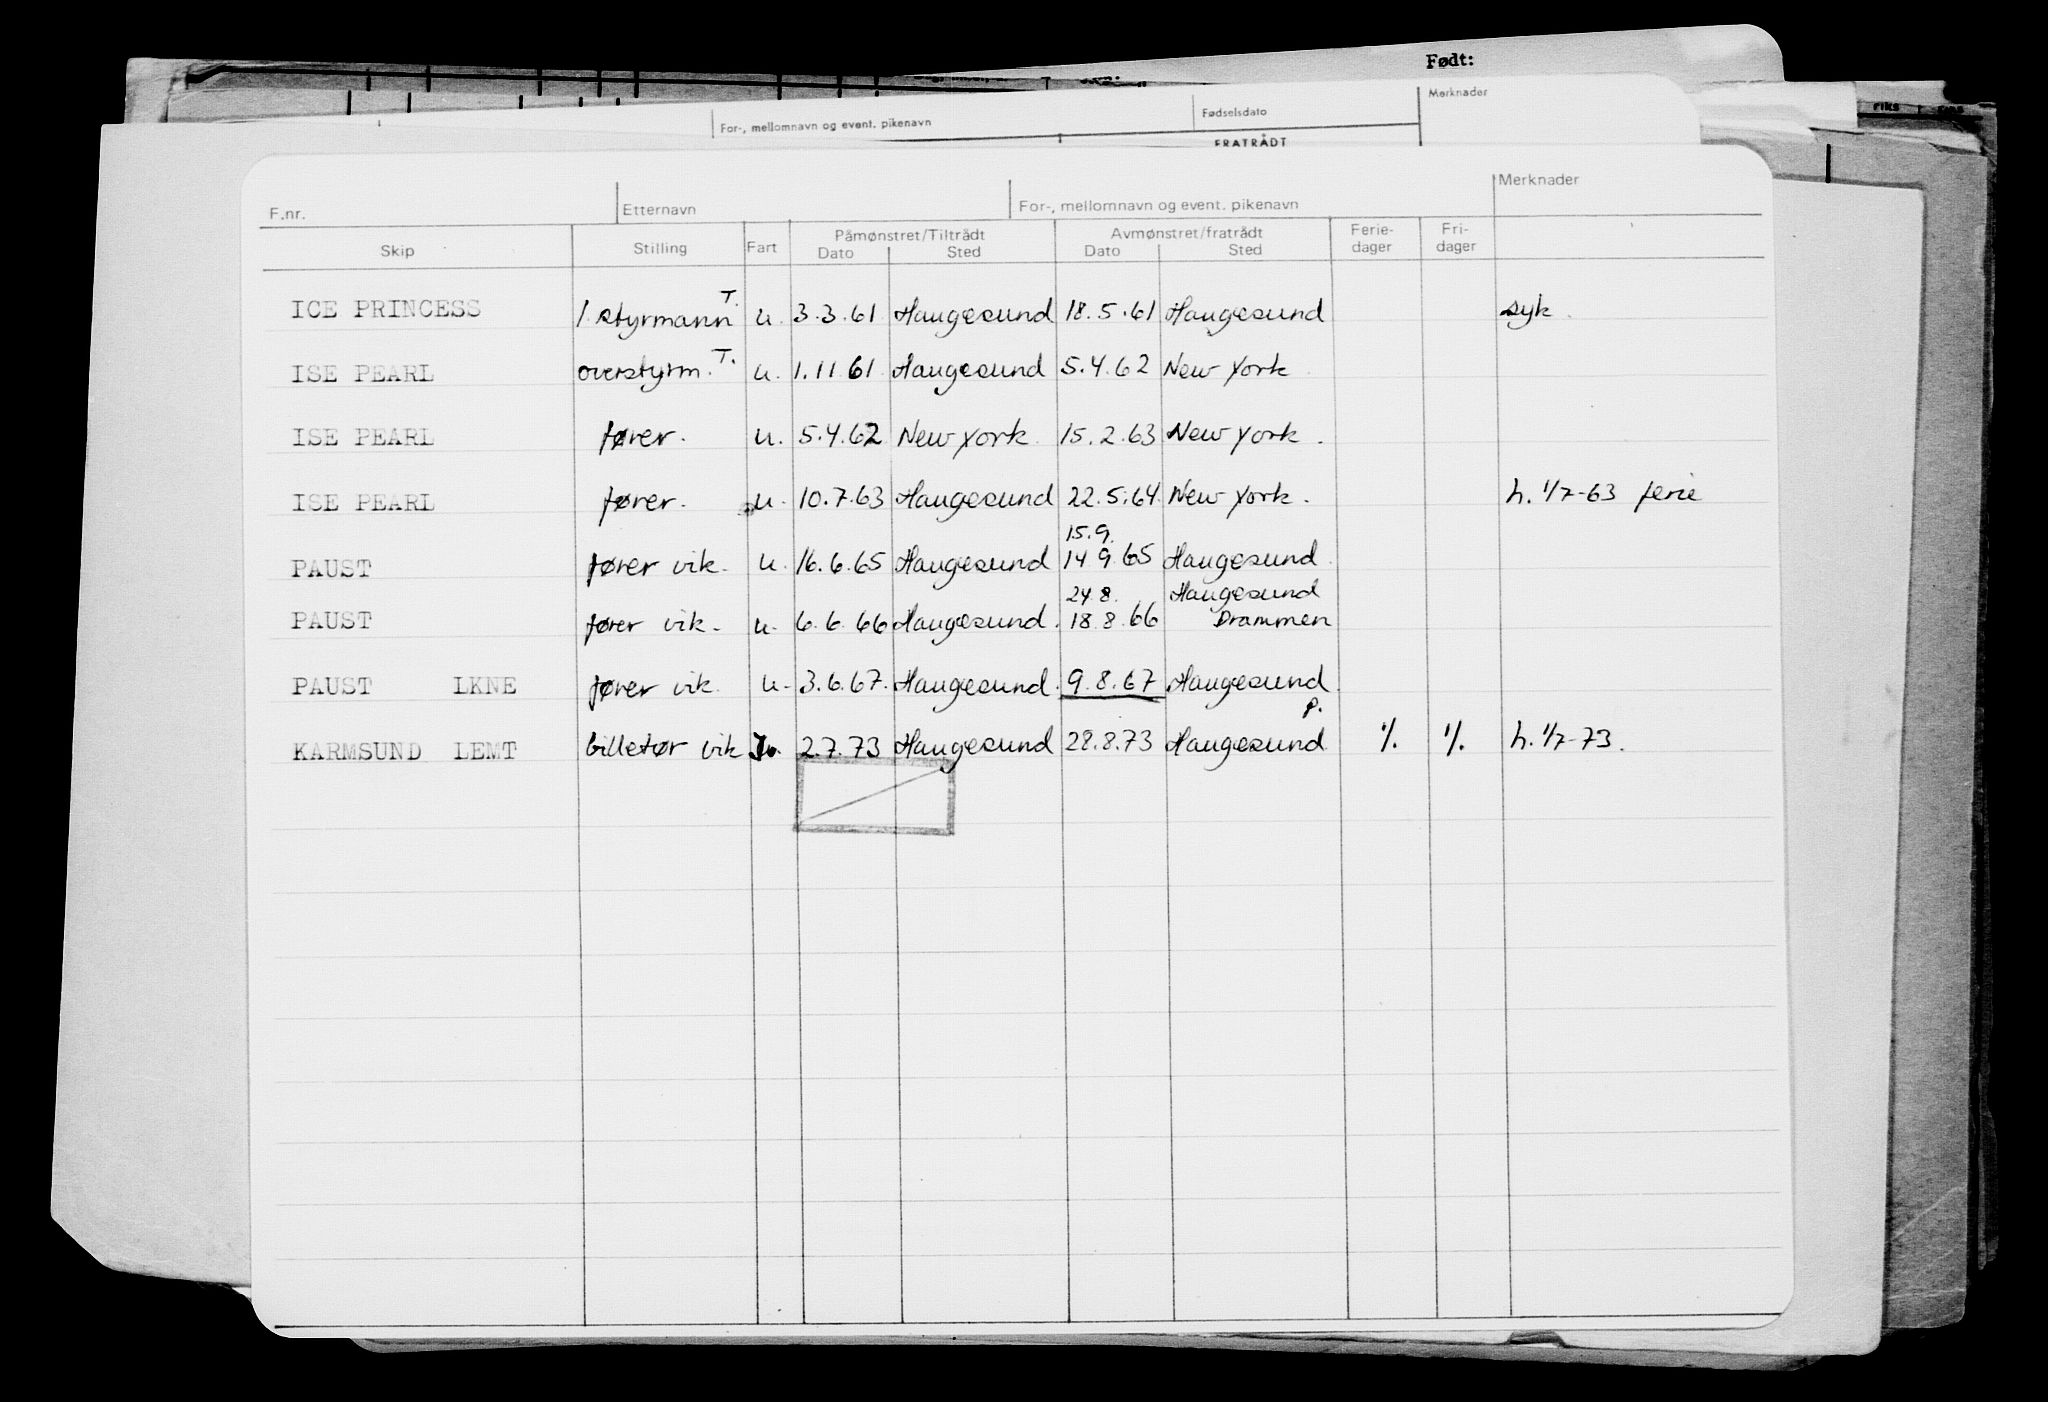 Født:
For-, mellomnavn og event. pikenavn Fødselsdato Merknader
FRATRÅDT
F.nr. Etternavn For-, mellomnavn og event. pikenavn Merknader
Skip Stilling Fart Påmønstret/Tiltrådt Dato Sted Avmønstret/fratrådt Dato Sted Ferie-dager Fri-dager
ICE PRINCESS 1. styrmann T. u. 3.3.61 Haugesund 18.5.61 Haugesund syk.
ISE PEARL overstyrm. T. u. 1.11.61 Haugesund 5.4.62 New York.
ISE PEARL fører. u. 5.4.62 New York. 15.2.63 New York.
ISE PEARL fører. u. 10.7.63 Haugesund 22.5.64. New York. h. 1/7-63 ferie
15.9.
PAUST fører vik. u. 16.6.65 Haugesund 14 9.65 Haugesund.
24 8. Haugesund
PAUST fører vik. u. 6.6.66 Haugesund. 18.8.66 Drammen
PAUST LKNE fører vik. u. 3.6.67. Haugesund. 9.8.67 Haugesund.
p.
KARMSUND LEMT billetør vik 2.7.73 Haugesund 28.8.73 Haugesund 1/. 1/. h. 1/7-73.